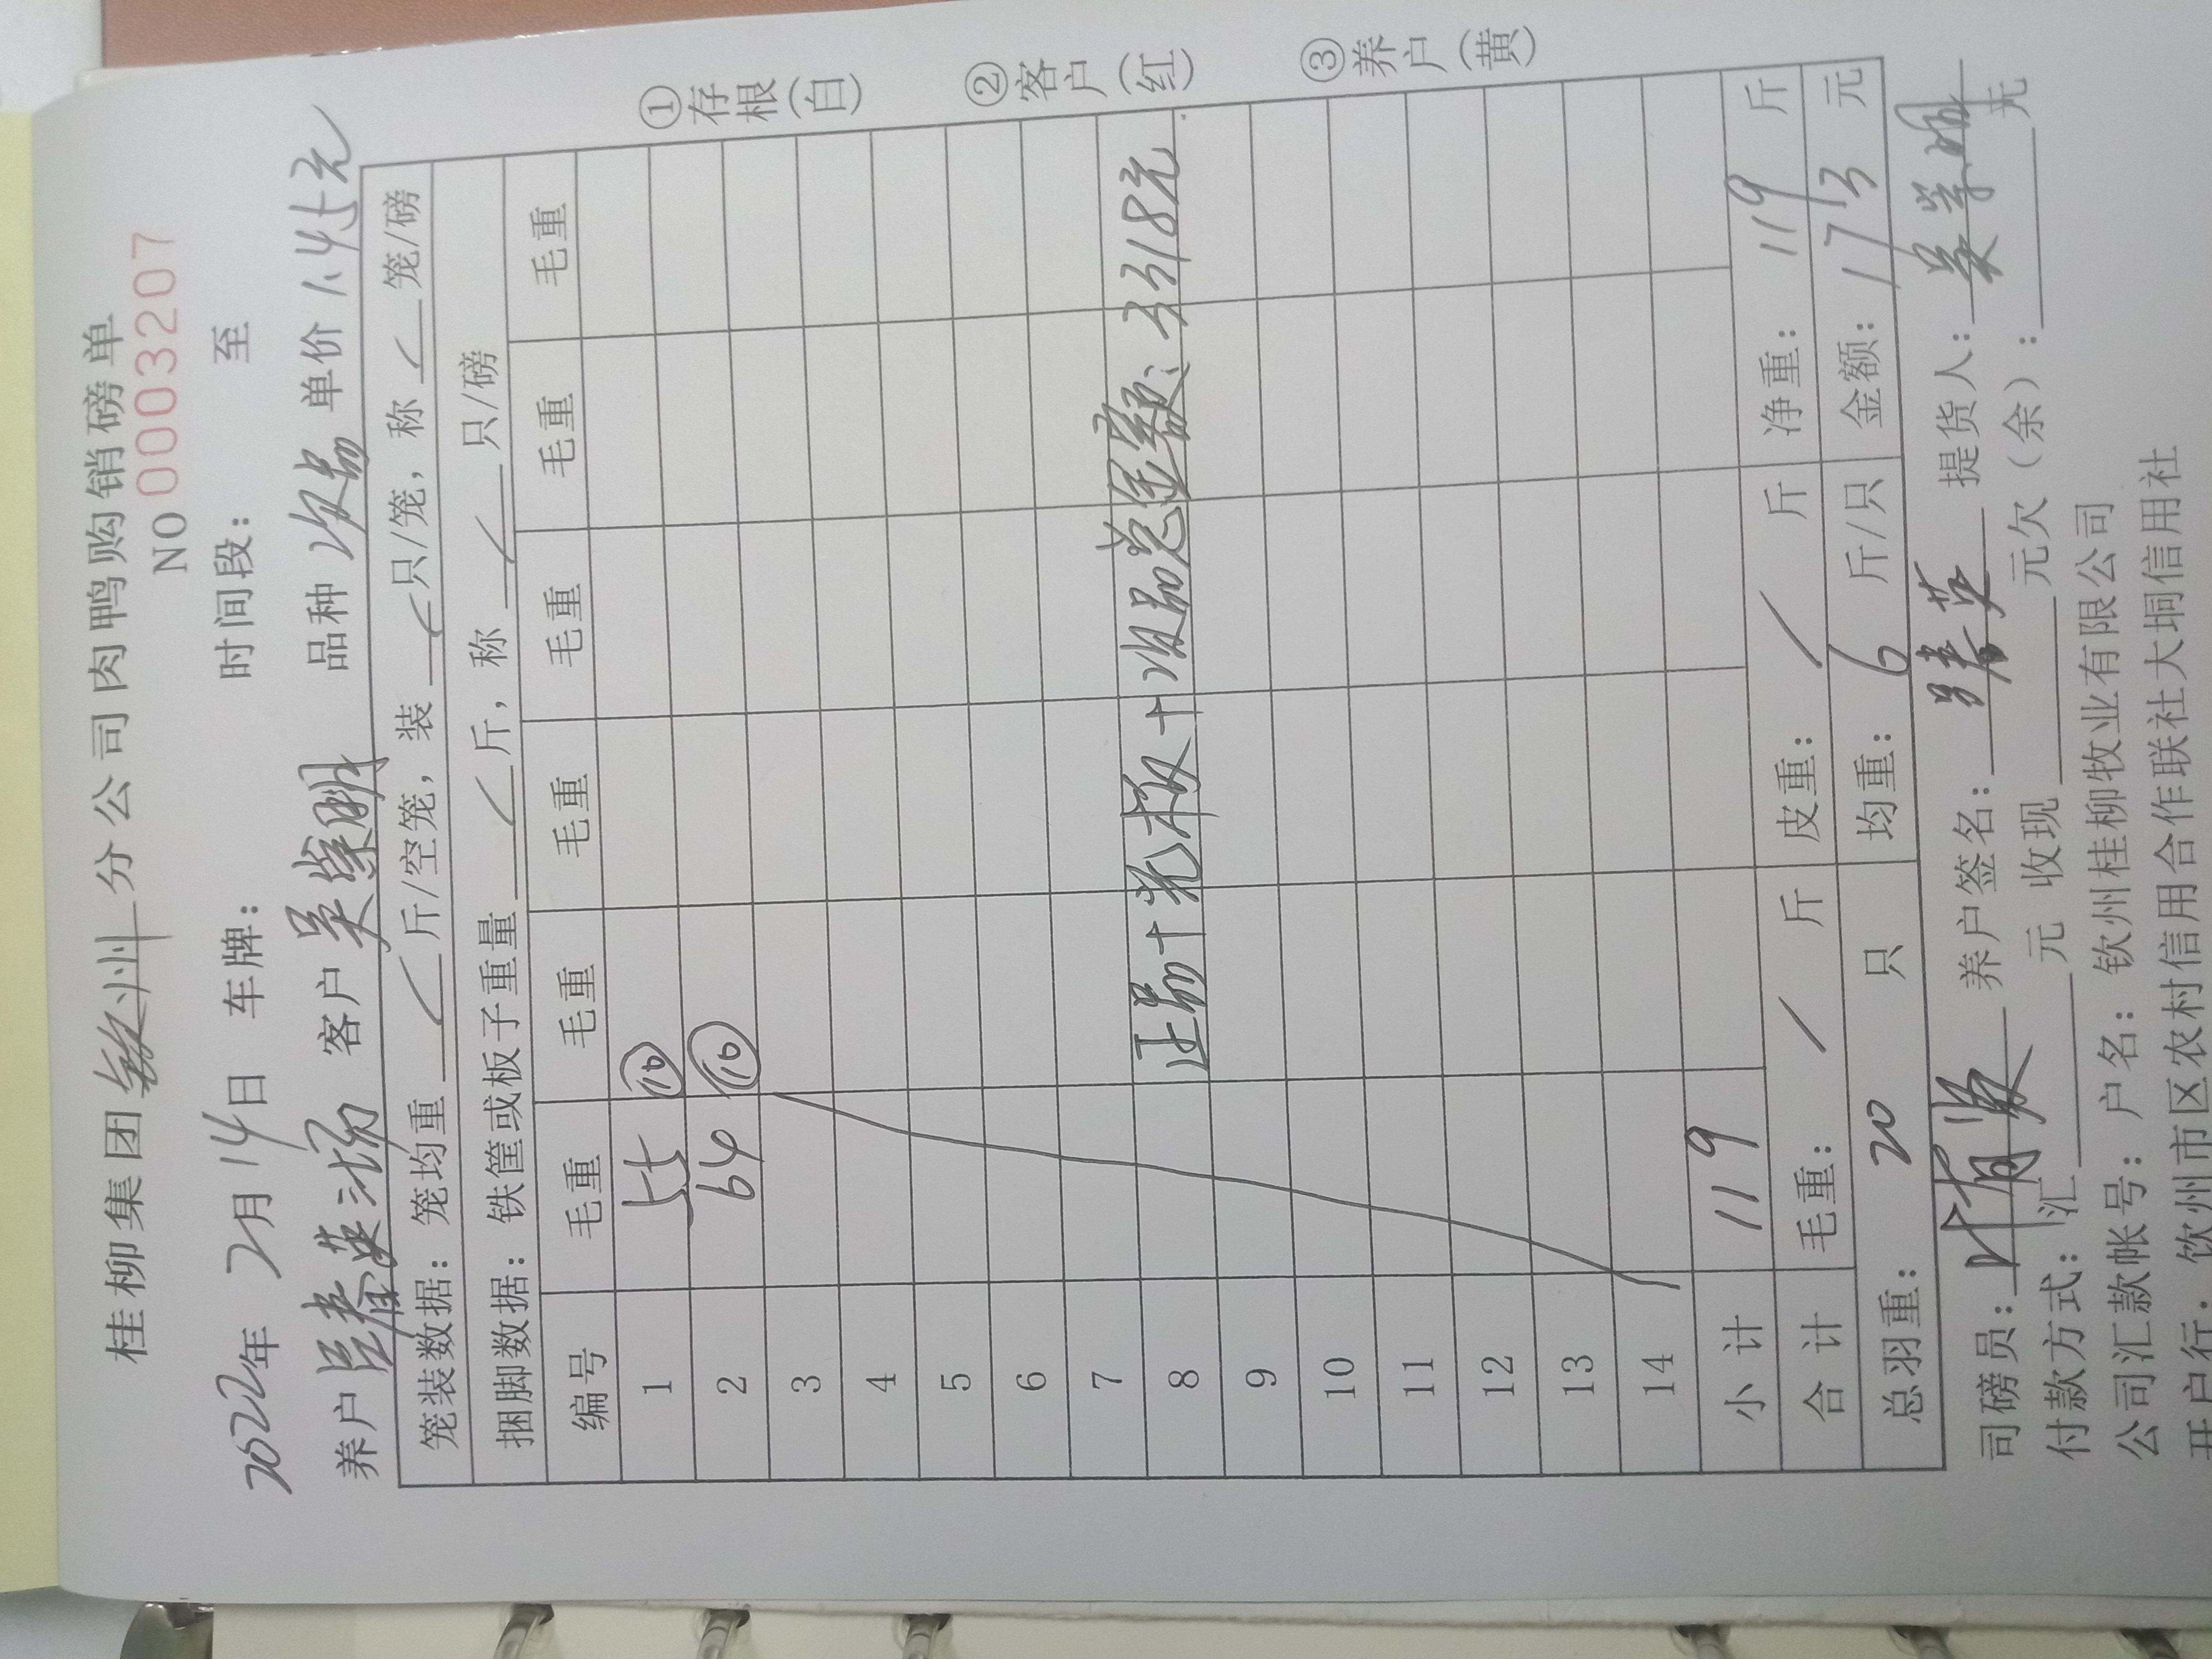 桂柳集团钦州分公司肉鸭购销磅单
NO 0003207
2022年 2月 14日 车牌： 时间段： 至
养户 春英汤 客户 吴崇明 品种 次品 单价 1.45元
笼装数据：笼均重 / 斤/空笼，装 / 只/笼，称 / 笼/磅
捆脚数据：铁筐或板子重量 / 斤，称 / 只/磅
编号 毛重 毛重 毛重 毛重 毛重 毛重
1 55 ⑩
2 64 ⑩
3
4
5
6
7
8 正品+光板+次品总金额：3318元
9
10
11
12
13
14
小计 119
合计 毛重： / 斤 皮重： / 斤 净重： 119 斤
总羽重： 20 只 均重： 6 斤/只 金额： 173 元
司磅员： 养户签名： 春英 提货人： 吴
付款方式：汇 元 收现 元欠（余）： 元
公司汇款帐号：户名：钦州桂柳牧业有限公司
开户行：钦州市区农村信用合作联社大垌信用社
①存根（白）
②客户（红）
③养户（黄）